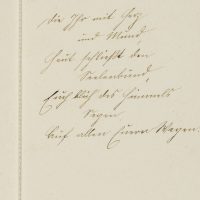 Die Ihr mit Herz
und Mund
Heut schließt den
Seelenbund,
Euch blüh des Himmels
Segen
Auf allen Euern Wegen.